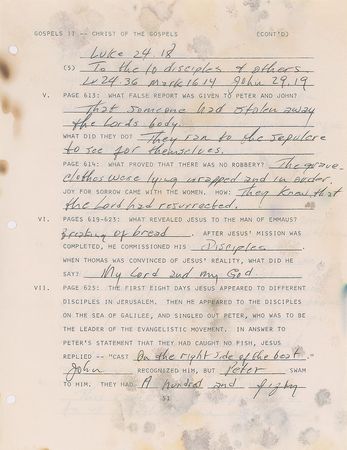 GOSPELS II -- CHRIST OF THE GOSPELS (CONT'D)
Luke 24 18
(5) To the 10 disciples & others.
Lu 24.36 Mark 16 14 John 20,19
V. PAGE 613: WHAT FALSE REPORT WAS GIVEN TO PETER AND JOHN?
That someone had stolen away
the Lords body.
WHAT DID THEY DO? They ran to the sepulcre
to see for themselves.
PAGE 614: WHAT PROVED THAT THERE WAS NO ROBBERY? The grave-
clothes were lying wrapped and in order.
JOY FOR SORROW CAME WITH THE WOMEN. HOW: They knew that
the Lord had resurrected.
VI. PAGES 619-625: WHAT REVEALED JESUS TO THE MAN OF EMMAUS?
Breaking of bread. AFTER JESUS' MISSION WAS
COMPLETED, HE COMMISSIONED HIS Disciples.
WHEN THOMAS WAS CONVINCED OF JESUS' REALITY, WHAT DID HE
SAY? My Lord and my God.
VII. PAGE 625: THE FIRST EIGHT DAYS JESUS APPEARED TO DIFFERENT
DISCIPLES IN JERUSALEM. THEN HE APPEARED TO THE DISCIPLES
ON THE SEA OF GALILEE, AND SINGLED OUT PETER, WHO WAS TO
BE THE LEADER OF THE EVANGELISTIC MOVEMENT. IN ANSWER TO
PETER'S STATEMENT THAT THEY HAD CAUGHT NO FISH, JESUS
REPLIED -- "CAST On the right side of the boat."
John RECOGNIZED HIM, BUT Peter SWAM
TO HIM. THEY HAD A hundred and fifty
51